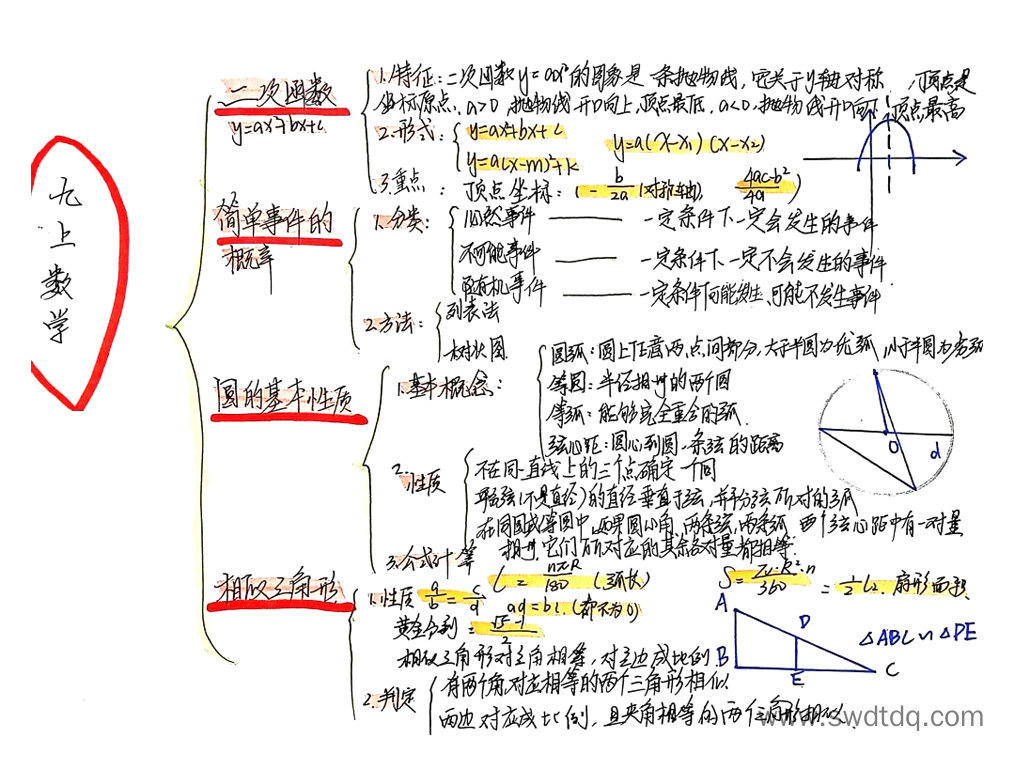 九上数学
二次函数
y=ax²+bx+c
1.特征:二次函数y=ax²的图象是一条抛物线,它关于y轴对称,顶点是
坐标原点,a>0,抛物线开口向上,顶点最低,a<0,抛物线开口向下,顶点最高
2.形式:
y=ax²+bx+c
y=a(x-x₁)(x-x₂)
y=a(x-m)²+k
3.重点:顶点坐标:(-b/2a(对称轴), 4ac-b²/4a)
简单事件的
概率
1.分类:
必然事件 —— 一定条件下一定会发生的事件
不可能事件 —— 一定条件下一定不会发生的事件
随机事件 —— 一定条件下可能发生,可能不发生事件
2.方法:
列表法
树状图
圆的基本性质
1.基本概念:
圆弧:圆上任意两点间部分,大于半圆为优弧,小于半圆为劣弧
等圆:半径相等的两个圆
等弧:能够完全重合的弧
弦心距:圆心到圆一条弦的距离
2.性质
不在同一直线上的三个点确定一个圆
平分弦(不是直径)的直径垂直于弦,并平分弦所对的弧
在同圆或等圆中,如果圆心角,两条弦,两条弧,两个弦心距中有一对量
相等,它们所对应的其余各对量都相等.
3.公式计算
l=nπR/180(弧长)
S=πR²·n/360=1/2lr.扇形面积
O
d
相似三角形
1.性质 a/b=c/d
ad=bc.(都不为0)
黄金分割=√5-1/2
相似三角形对应角相等,对应边成比例
2.判定
有两个角对应相等的两个三角形相似
两边对应成比例,且夹角相等的两个三角形相似.
A
D
B
E
C
△ABC∽△DE
www.swdtdq.com